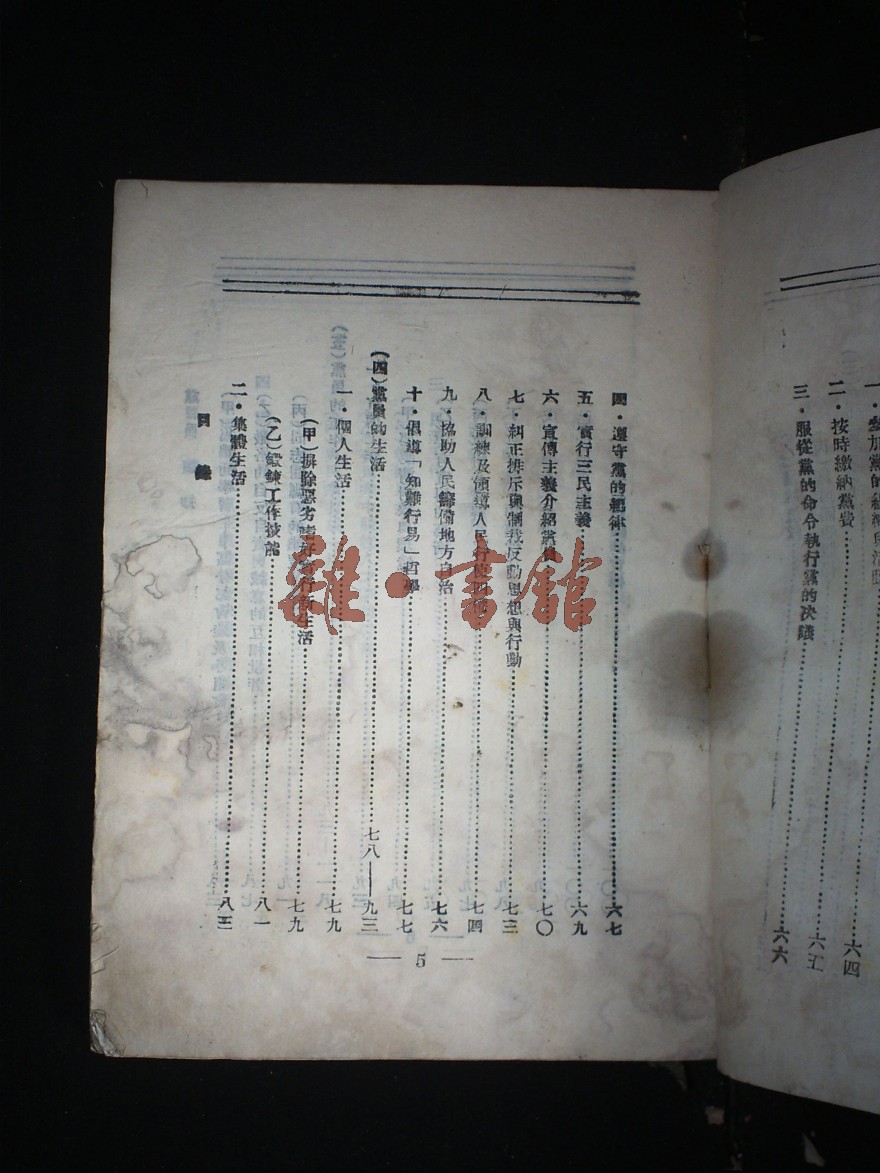 二．按時繳納黨費……六四
三．服從黨的命令執行黨的决議……六六
四．遵守黨的紀律……六七
五．實行三民主義……六九
六．宣傳主義介紹黨員……七〇
七．糾正排斥與制裁反動思想與行動……七三
八．訓練及領導人民行使四權……七四
九．協助人民籌備地方自治……七六
十．倡導「知難行易」哲學……七七
（四）黨員的生活……七八——九三
一．個人生活……七九
（甲）摒除惡劣嗜好實行新生活……七九
（乙）鍛鍊工作技能……八一
二．集體生活……八三
目錄
— 5 —
雜·書館